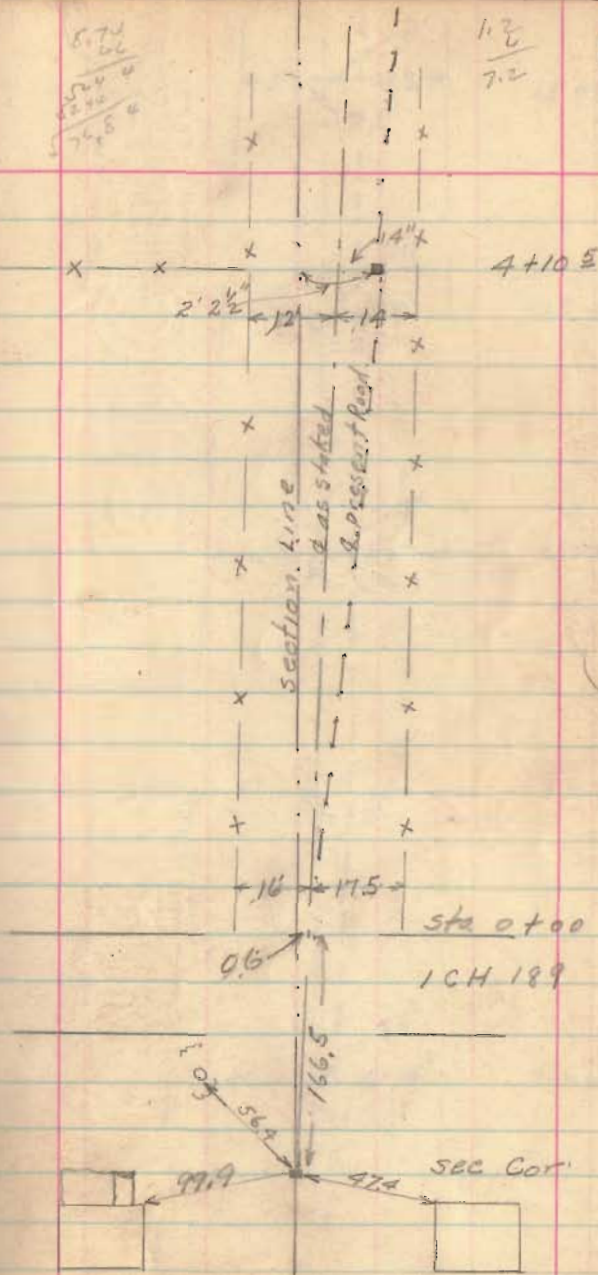 1.2
7.2
14"
4+10 5
2' 2½"
12
14
Section Line
℄ as staked
℄ present Road
16
17.5
Sta 0+00
0.6
ICH 189
166.5
56.4
99.9
47.4
sec Cor.